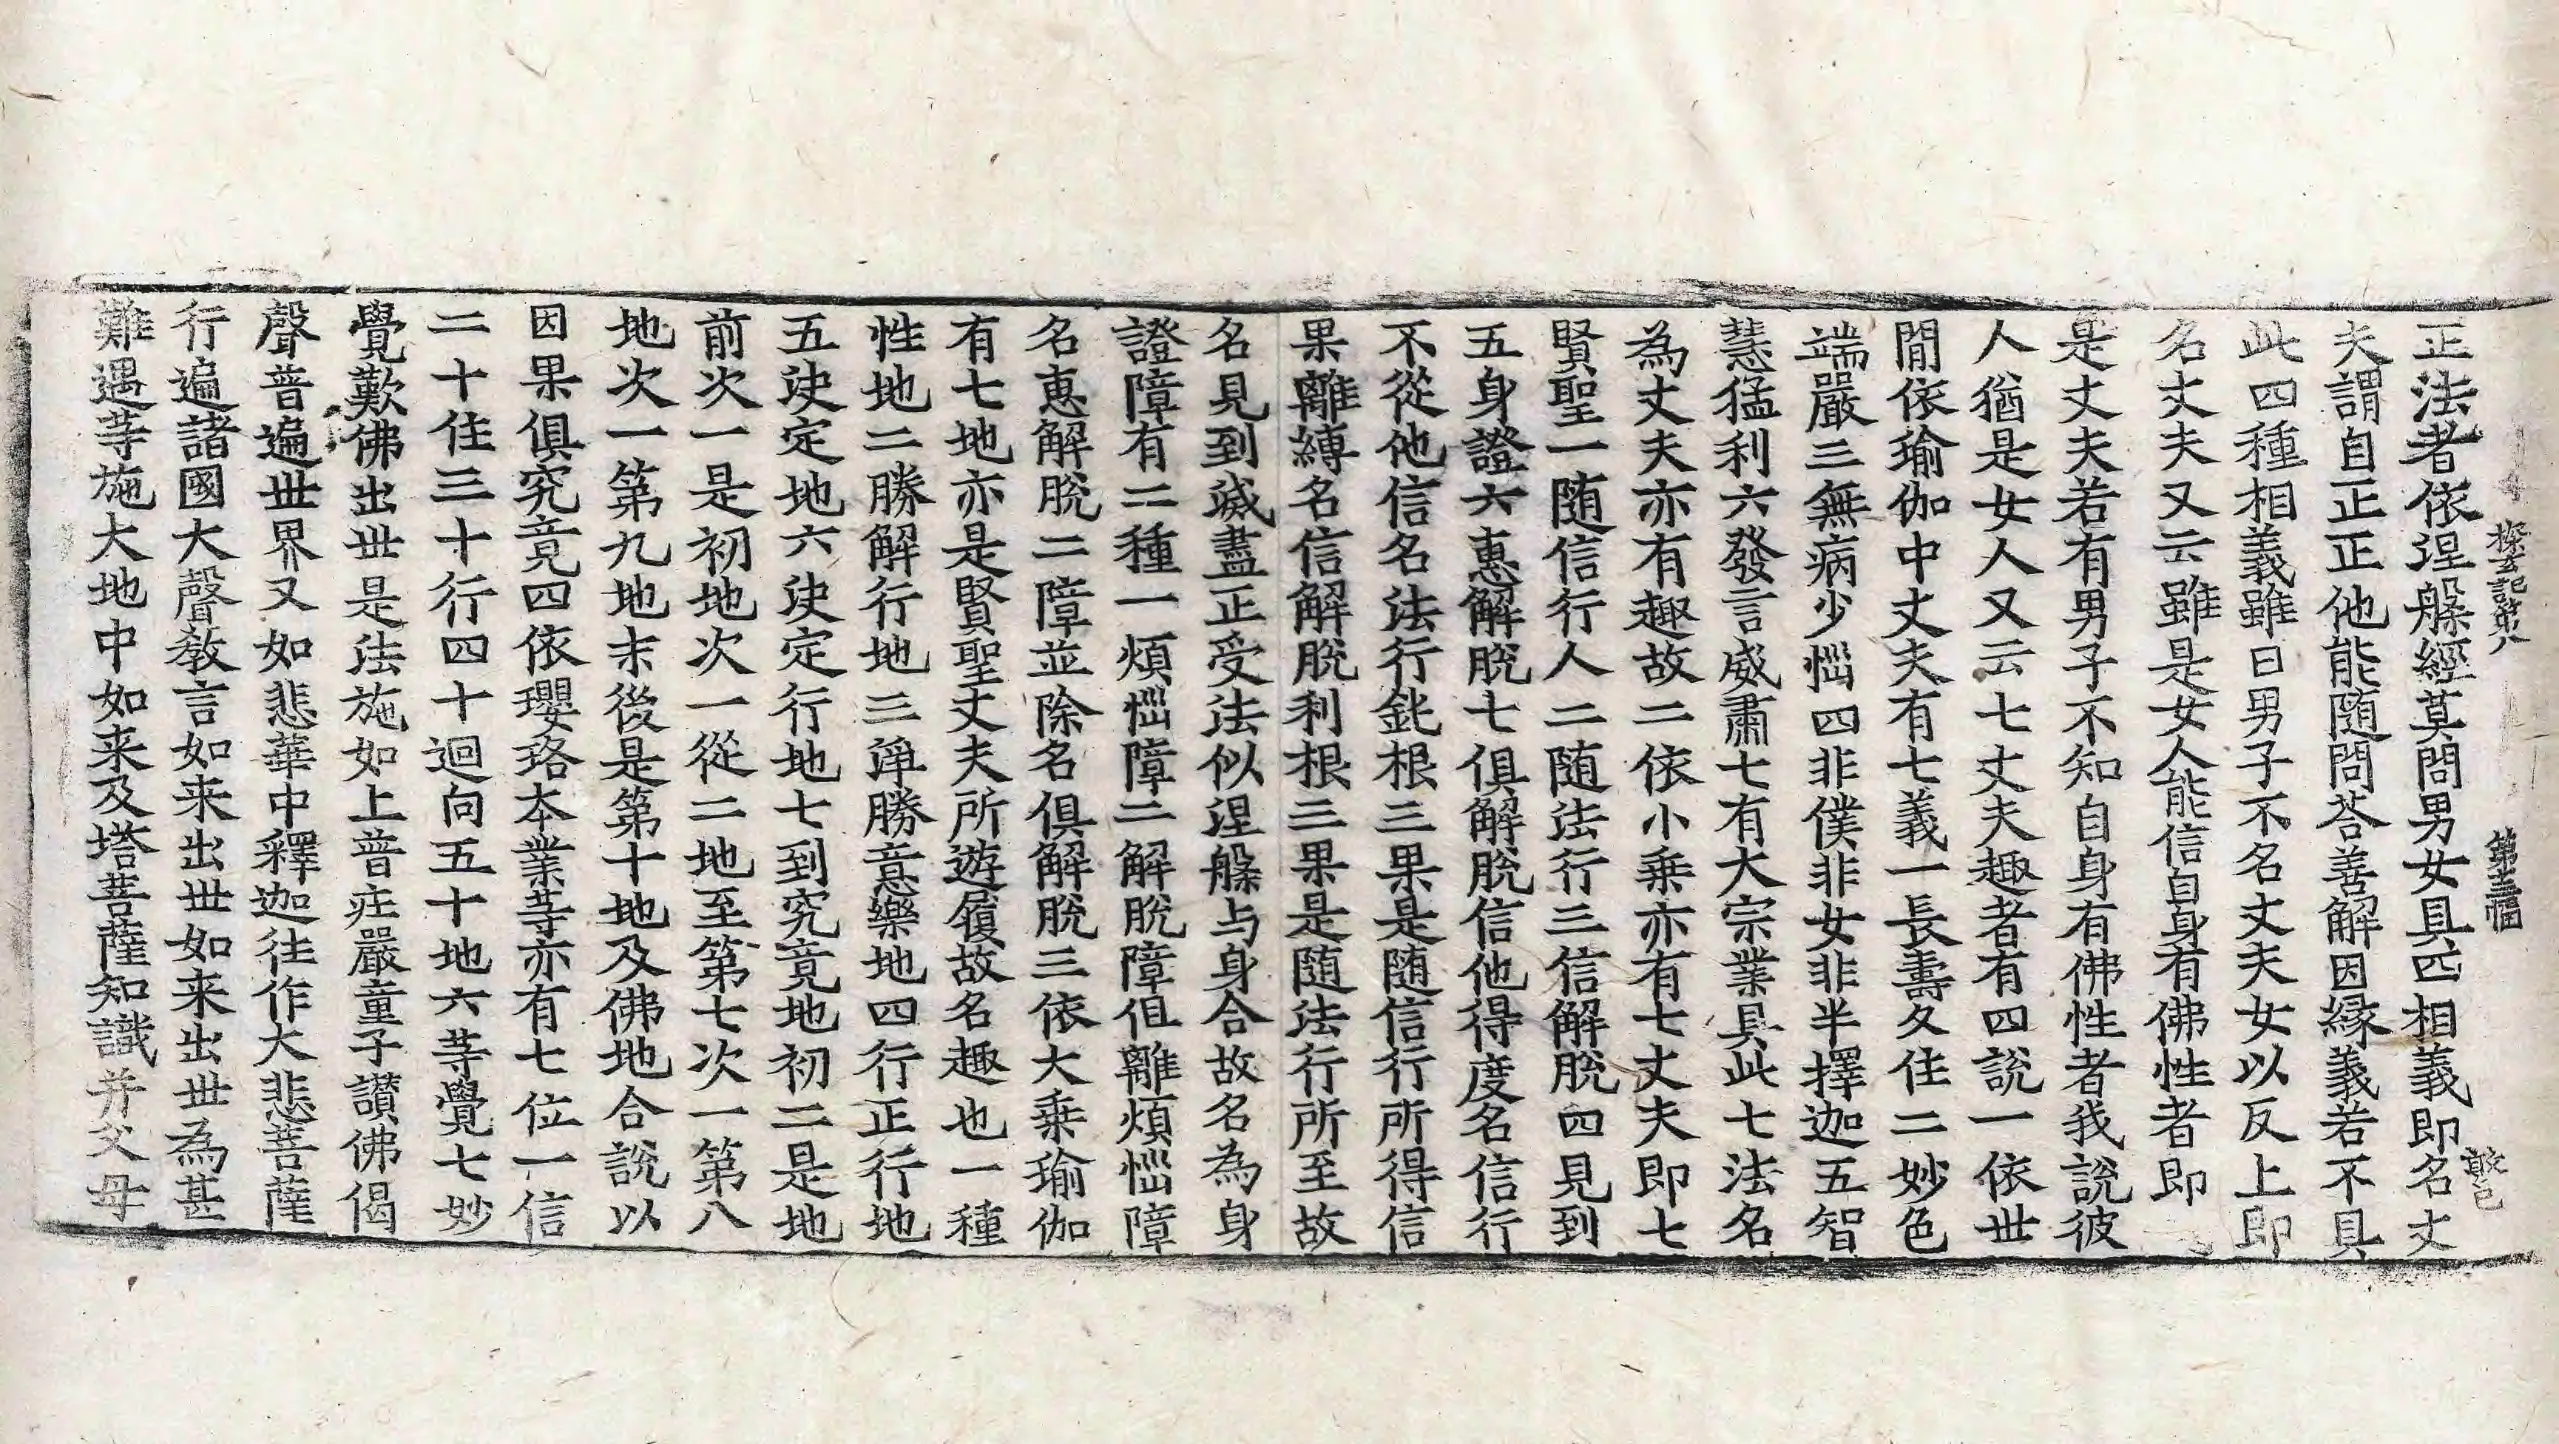 探玄記第八 第三幅 敢己
正法者依涅槃經莫問男女具匹相義即名丈
夫謂自正正他能随問荅善解因緣義若不具
此四種相義雖曰男子不名丈夫女以反上即
名丈夫又云雖是女人能信自身有佛性者即
是丈夫若有男子不知自身有佛性者我說彼
人猶是女人又云七丈夫趣者有四說一依世
閒依瑜伽中丈夫有七義一長壽久住二妙色
端嚴三無病少惱四非僕非女非半擇迦五智
慧猛利六發言威肅七有大宗業具此七法名
為丈夫亦有趣故二依小乗亦有七丈夫即七
賢聖一随信行人二随法行三信解脫四見到
五身證六惠解脫七俱解脫信他得度名信行
不從他信名法行鈍根三果是随信行所得信
果離縛名信解脫利根三果是随法行所至故
名見到滅盡正受法似涅槃与身合故名為身
證障有二種一煩惱障二解脫障但離煩惱障
名惠解脫二障並除名俱解脫三依大乗瑜伽
有七地亦是賢聖丈夫所遊履故名趣也一種
性地二勝解行地三淨勝意樂地四行正行地
五決定地六決定行地七到究竟地初二是地
前次一是初地次一從二地至第七次一第八
地次一第九地末後是第十地及佛地合說以
因果俱究竟四依瓔珞本業等亦有七位一信
二十住三十行四十迴向五十地六等覺七妙
覺歎佛出世是法施如上普莊嚴童子讃佛偈
聲普遍世界又如悲華中釋迦往作大悲菩薩
行遍諸國大聲教言如来出世如来出世為甚
難遇等施大地中如来及塔菩薩知識并父母